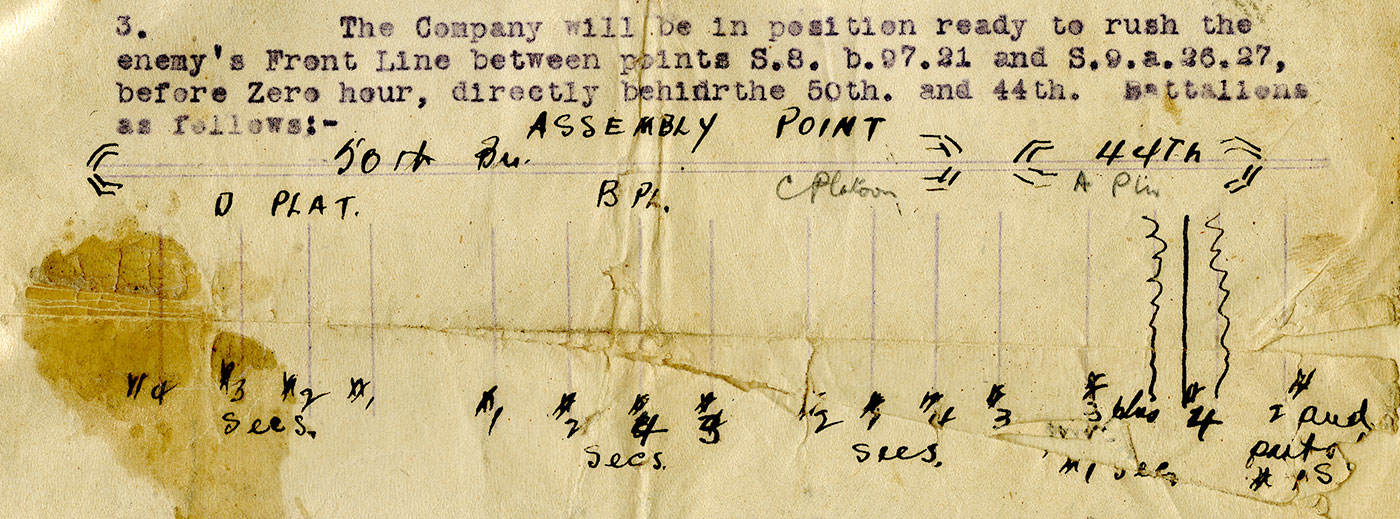 3. The Company will be in position ready to rush the
enemy's Front Line between points S.8. b.97.21 and S.9.a.26.27,
before Zero hour, directly behind the 50th. and 44th. Battalions
as follows:-
ASSEMBLY POINT
50th Bn. 44Th
D PLAT. B PL. C Platoon A Pltn
#4 #3 #2 #1 #1 #2 #4 #3 #2 #1 #4 #3 #3 plus #4 #2 and
Secs. Secs. Secs. #1 Sec parts
# 1 S